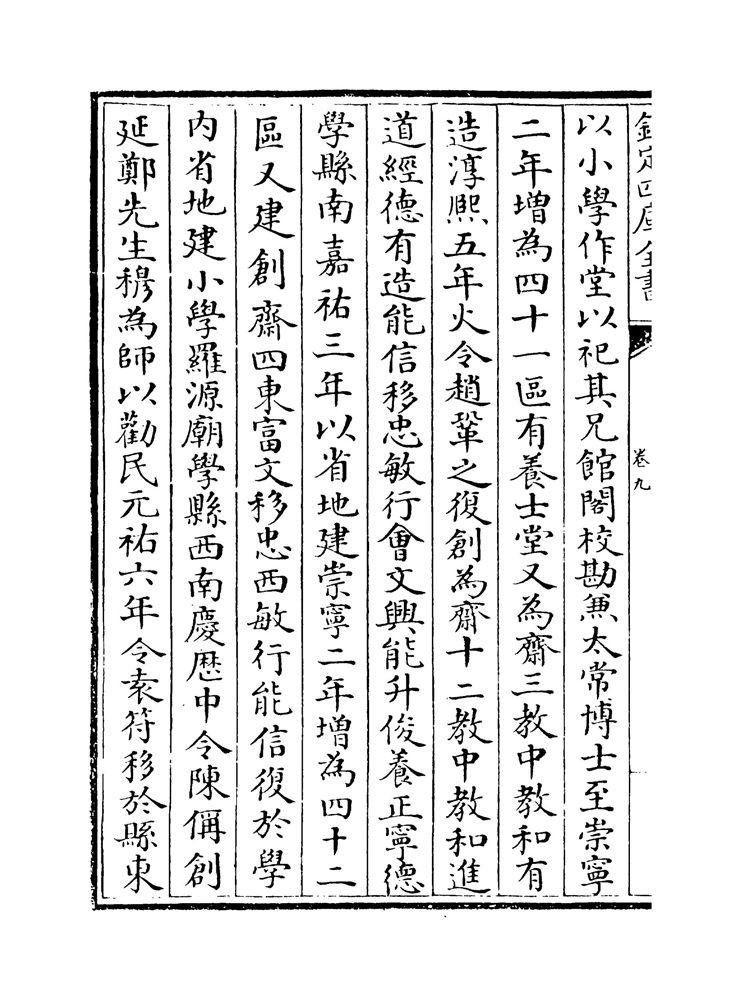 欽定四庫全書
卷九
以小學作堂以祀其兄館閣校勘兼太常博士至崇寧
二年増為四十一區有養士堂又為齋三教中教和有
造淳熈五年火令趙鞏之復創為齋十二教中教和進
道經德有造能信移忠敏行會文興能升俊養正寧德
學縣南嘉祐三年以省地建崇寧二年増為四十二
區又建創齋四東富文移忠西敏行能信復於學
内省地建小學羅源廟學縣西南慶厯中令陳偁創
延鄭先生穆為師以勸民元祐六年令袁符移於縣東